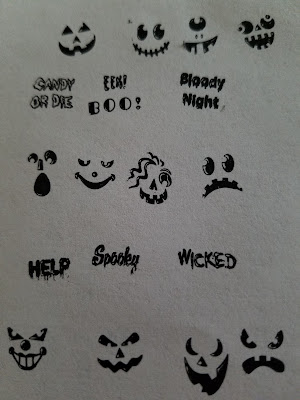 CANDY
OR DIE
EEK!
BOO!
Bloody
Night
HELP
Spooky
WICKED